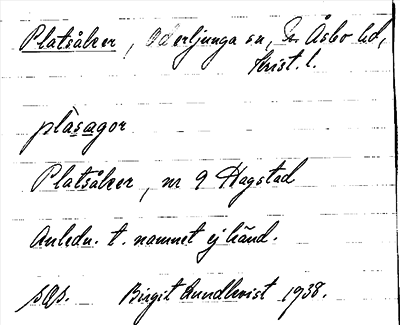 Platsåker, Oderljunga sn, N. Åsbo hd,
Krist. l.
plåsagor
Platsåker, nr 9 Hagstad
Anledn. t. namnet ej känd.
SOS. Birgit Lundkvist 1938.